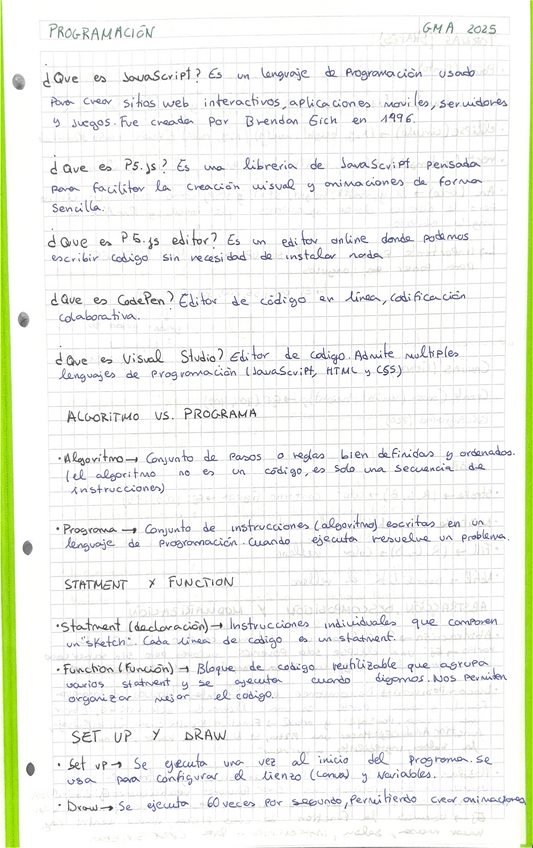 PROGRAMACIÓN
GMA 2025
¿Que es JavaScript? Es un lenguaje de Programación usado
Para crear sitios web interactivos, aplicaciones moviles, servidores
y Juegos. Fue creada Por Brendan Eich en 1996.
¿Que es P5.js? Es una libreria de JavaScript pensada
Para facilitar la creación visual y animaciones de forma
Sencilla.
¿Que es P5.js editor? Es un editor online donde podemos
escribir codigo sin necesidad de instalar nada
¿Que es CodePen? Editor de código en línea, codificación
colaborativa.
¿Que es Visual Studio? Editor de codigo. Admite multiples
lenguajes de Programación (JavaScript, HTML y CSS)
ALGORITMO VS. PROGRAMA
·Algoritmo → Conjunto de Pasos o reglas bien definidas y ordenados.
(el algoritmo no es un código, es solo una secuencia de
instrucciones)
·Programa → Conjunto de instrucciones (algoritmo) escritas en un
lenguaje de Programación. Cuando ejecuta resuelve un problema.
STATMENT X FUNCTION
·Statment (declaración) → Instrucciones individuales que componen
un "sketch". Cada línea de codigo es un statment.
·Function (Función) → Bloque de codigo reutilizable que agrupa
varios statment y se ejecuta cuando digamos. Nos permiten
organizar mejor el codigo.
SET UP Y DRAW
· Set up → Se ejecuta una vez al inicio del Programa. Se
usa para configurar el lienzo (Canva) y variables.
· Draw → Se ejecuta 60 veces por segundo, permitiendo crear animaciones